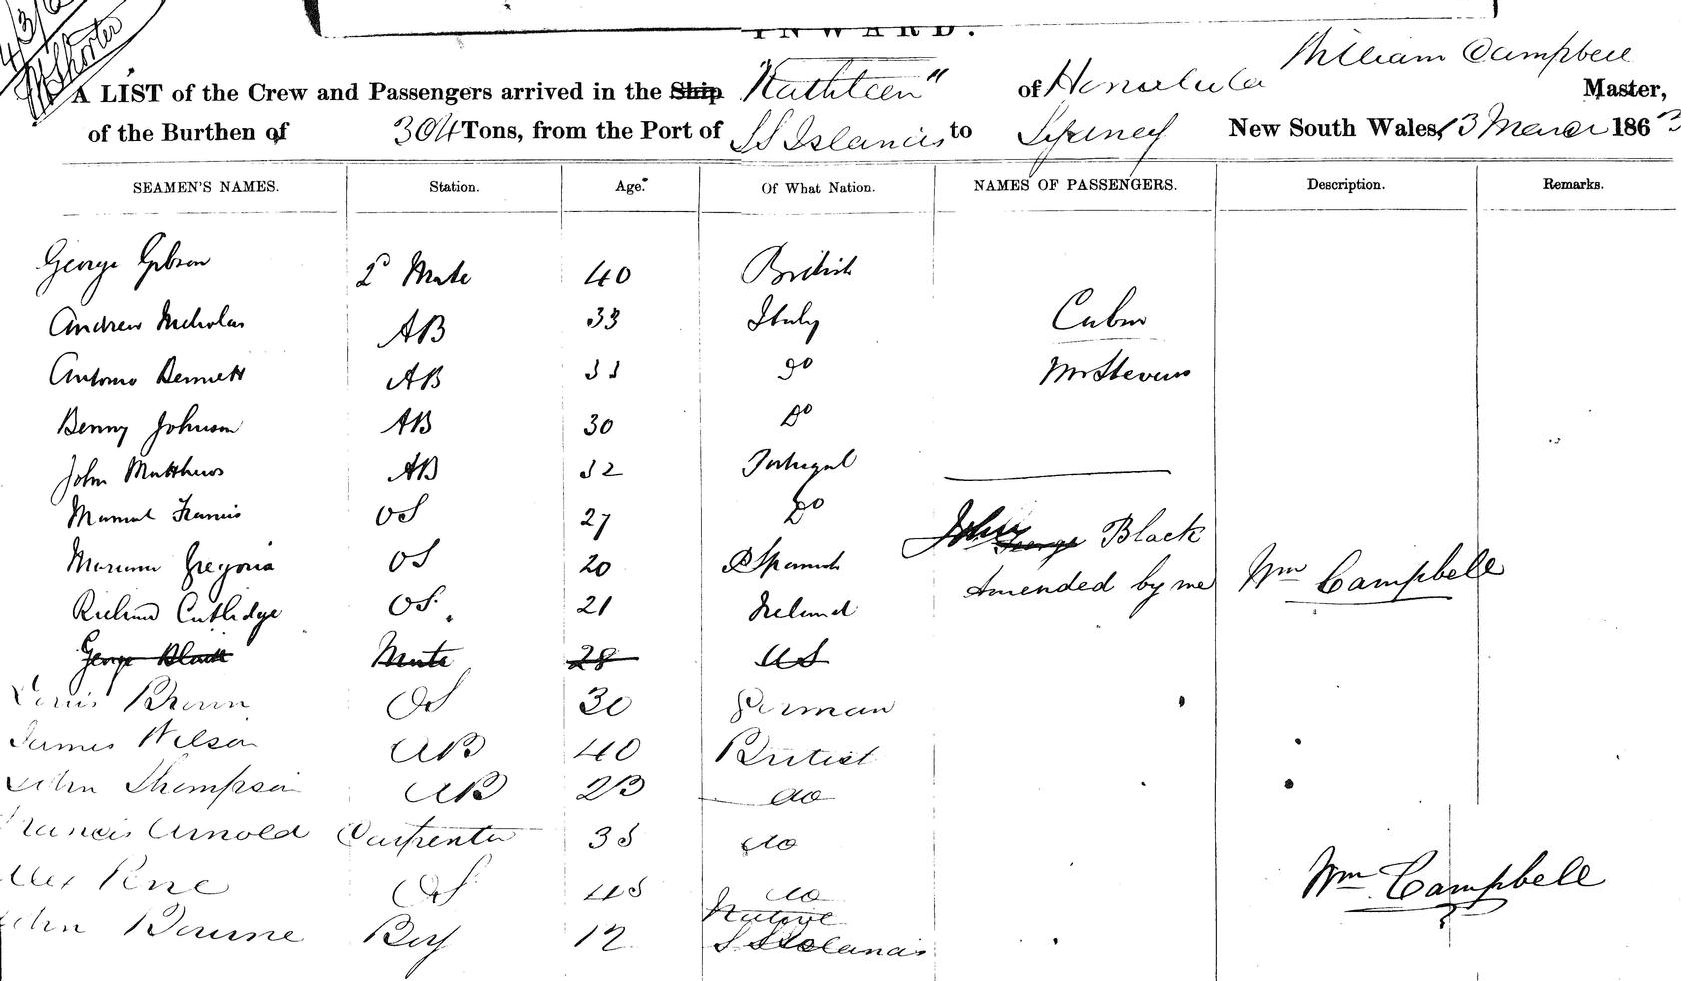 W Shorter
INWARD.
A LIST of the Crew and Passengers arrived in the Ship "Kathleen" of Honolulu William Campbell Master,
of the Burthen of 304 Tons, from the Port of SS Islands to Sydney New South Wales, 13 March 1863
SEAMEN'S NAMES. Station. Age. Of What Nation. NAMES OF PASSENGERS. Description. Remarks.
George Gibson 2d Mate 40 British
Andrew Nicholas AB 33 Italy Cabin
Antonio Bennett AB 33 Do Mr Stevens
Benny Johnson AB 30 Do
John Matthews AB 32 Portugal
Manuel Francis OS 27 Do
John George Black
Gregoria OS 20 Spanish
Amended by me Wm Campbell
Richard Cutlidge OS. 21 Ireland
George Black Mate 28 US
Louis Brown OS 30 German
James Wilson AB 40 British
John Thompson AB 23 do
Francis Arnold Carpenter 35 do
Alex OS 45 do
Wm Campbell
John Bourne Boy 12 Native S S Islands